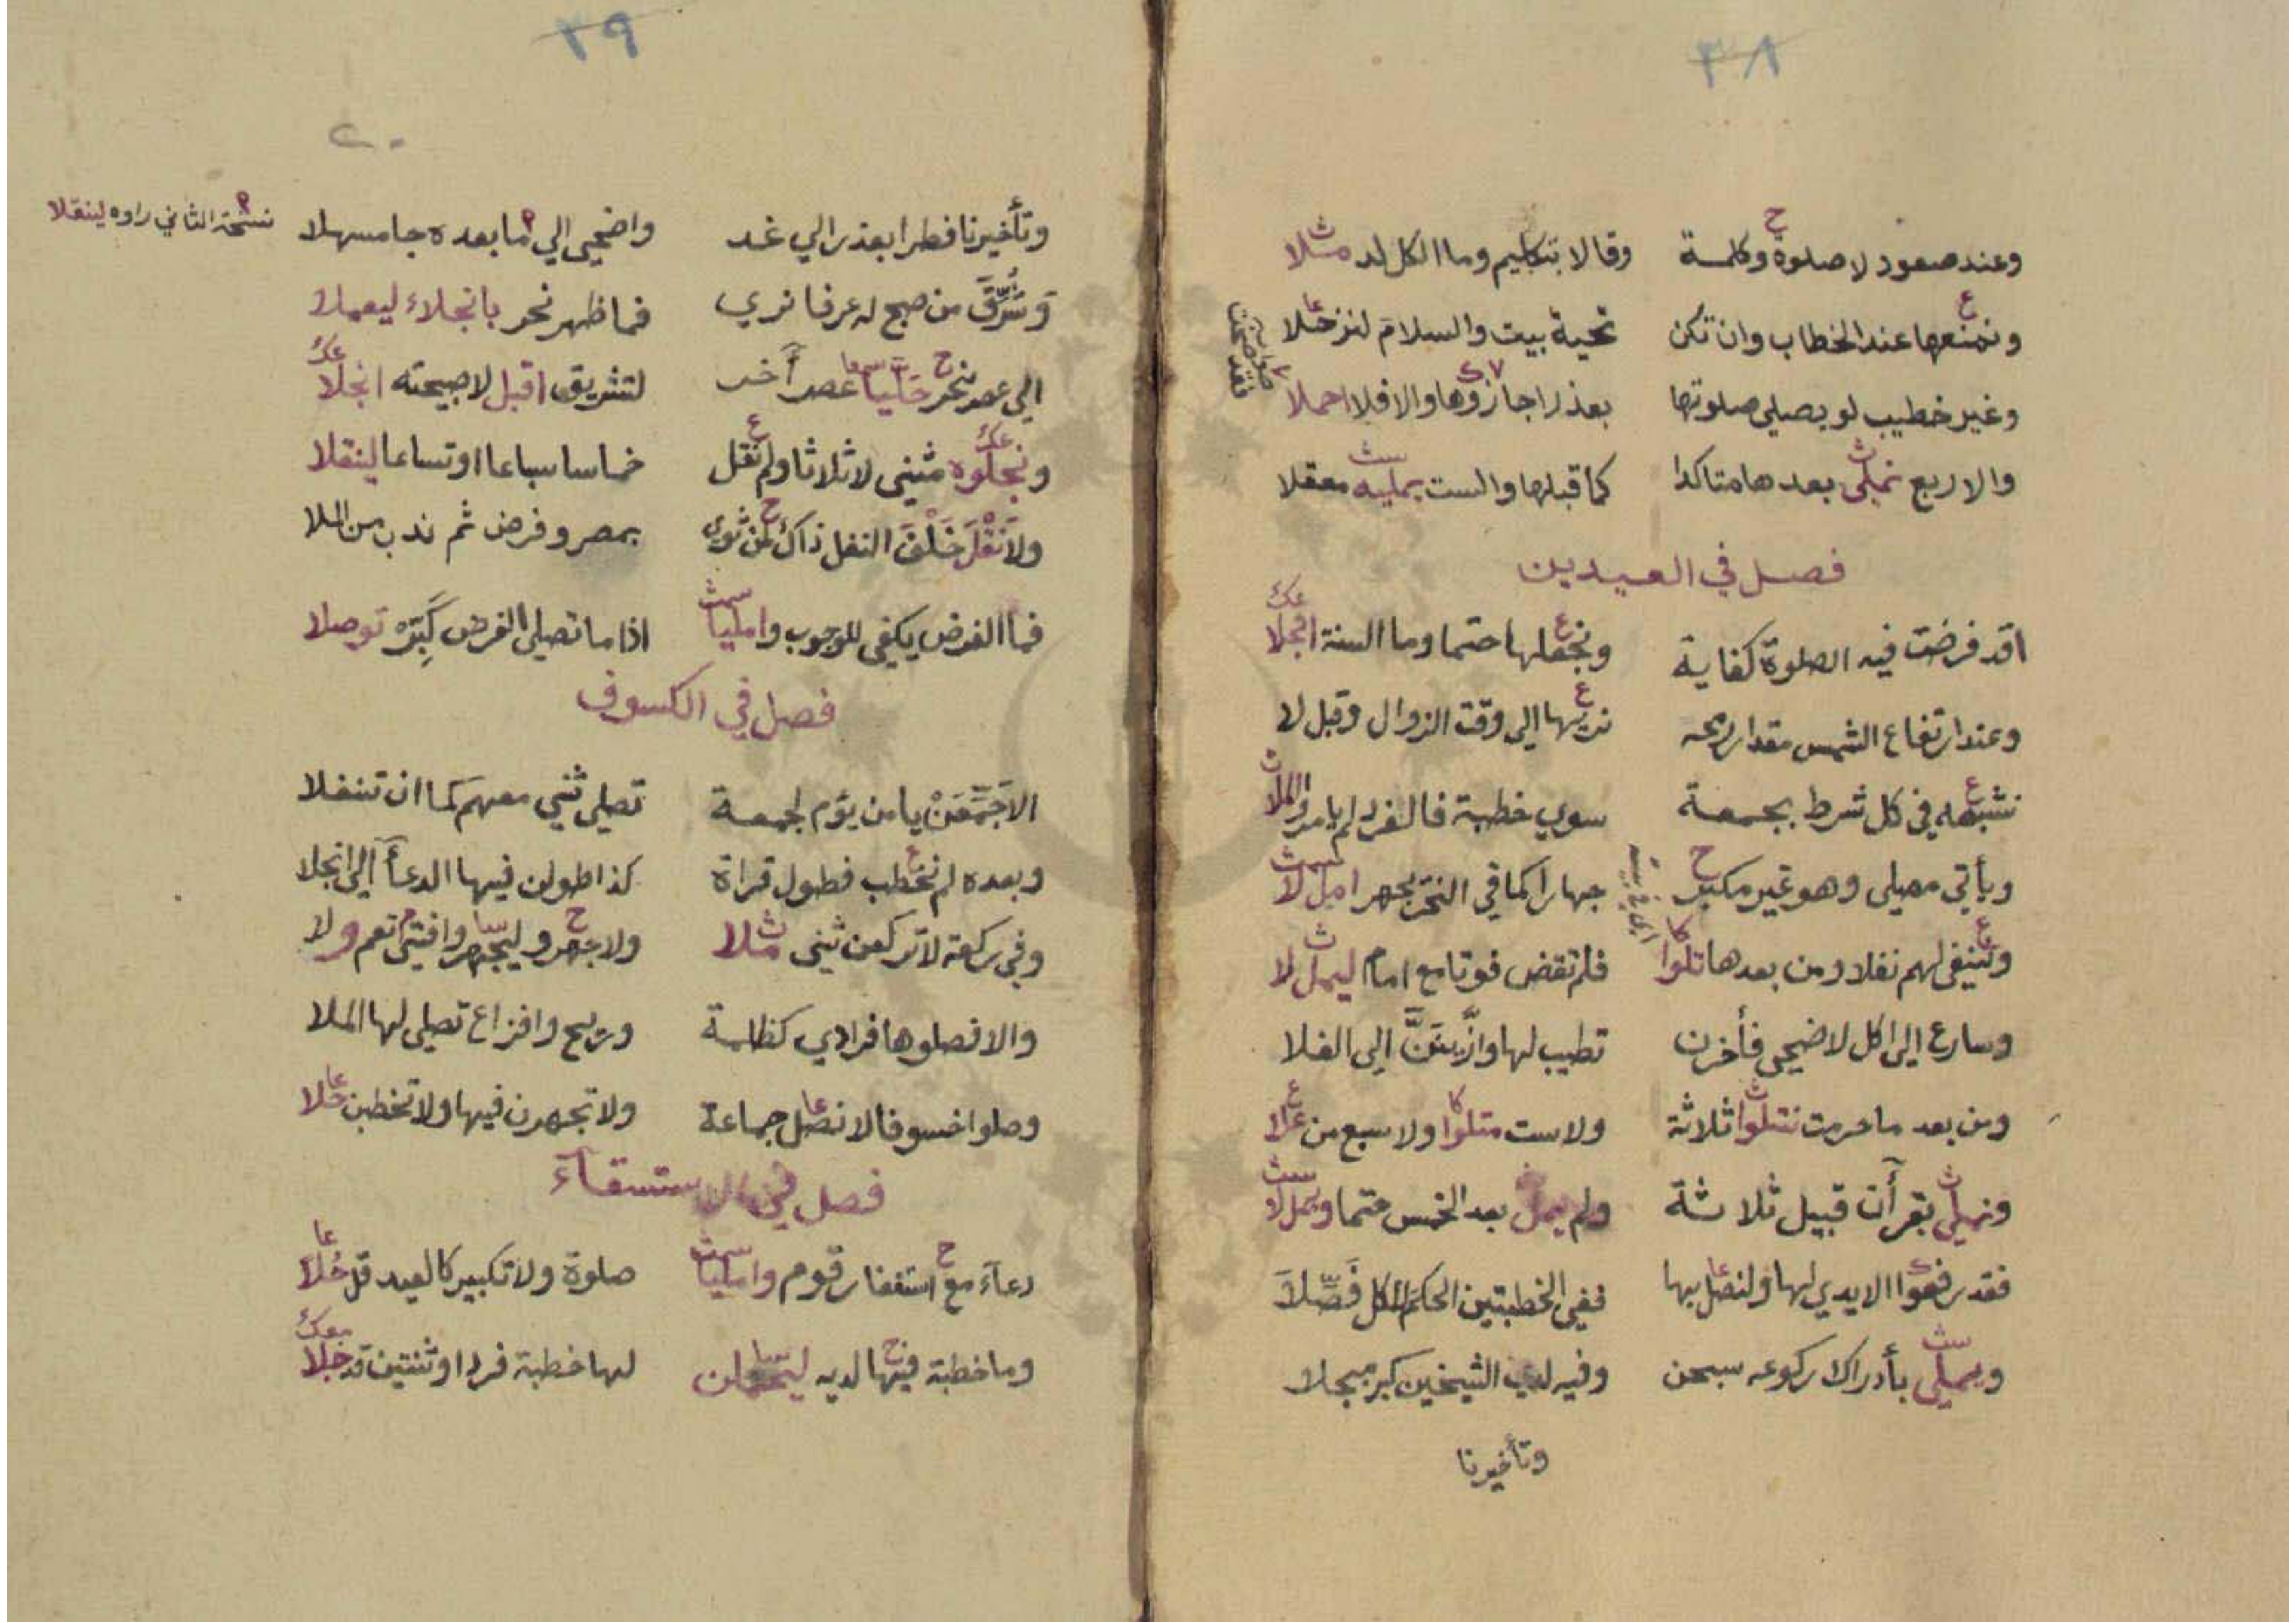 ٣٨
وعند صعود لا صلوة وكلمة وقالا بتكليم وما الكل له مثلا
ونمنعها عند الخطاب وان تكن تحية بيت والسلام لنزخلا
وغير خطيب لو يصلي صلوتها بعذر اجازوها والا فلا احملا
والاربع نملي بعدها متاكدا كما قبلها والست يمليه معقلا
فصل في العيدين
اقد فرضت فيه الصلوة كفاية ونجعلها حتما وما السنة انجلا
وعند ارتفاع الشمس مقدار رمحه نريها الى وقت الزوال وقبل لا
نشبهه في كل شرط بجمعة سوي خطبة فالفرد لم يامر والملا
ويأتي مصلى وهو غير مكبر جهارا كما في النحر بجهر امل لا
وننفي لهم نفلا ومن بعدها تلوا فلم تقض فوتا مع امام ليمل لا
وسارع الى اكل لاضحى فأخرن تطيب لها وازينن الى الفلا
ومن بعد ما حرمت نتلوا ثلاثة ولا ست متلوا ولا سبع من علا
ونملي بقرآن قبيل ثلاثة ولم يمل بعد الخمس حتما ويمل لا
فقد رفعوا الايدي لها ولنصل بها ففي الخطبتين الحكم للكل فصلا
ويملي بأدراك ركوعه سبحن وفيه لدي الشيخين كبر مبجلا
وتأخيرنا
٣٩
٢٠
وتأخيرنا فطرا بعذر الي غد واضحى الي ما بعده جا مسهلا
نسخة الثاني راوه لينقلا
وشرق من صبح له عرفا نري فما ظهر نحر بانجلاء ليعملا
الي عصر نحر حليا عصر آخر لتشريق اقبل لا صبيحته انجلا
ونجلوه مثنى لا ثلاثا ولم نقل خماسا سباعا او تساعا لينقلا
ولا نقل خلف النفل ذاك لمن ثوى بمصر وفرض ثم ندب من الملا
فما الفرض يكفي للوجوب وامليا اذا ما تصلي الفرض كبره توصلا
فصل في الكسوف
الا جمعن يا من يؤم لجمعة تصلي ثني معهم كما ان تنفلا
وبعده لم نخطب فطول قراة كذا طولن فيها الدعآ الي انجلا
وفي ركعة لا تركعن ثنى مثلا ولا جهر وليجهر وافتى نعم ولا
والا فصلوها فرادي كظلمة وريح وافزاع تصلي لها الملا
وصلوا خسوفا لا نصل جماعة ولا تجهرن فيها ولا تخطبن خلا
فصل في الاستسقآء
دعآء مع استغفار قوم وامليا صلوة ولا تكبير كالعيد قل خلا
وما خطبة فيها لديه لها خطبة فردا او ثنتين قد جلا